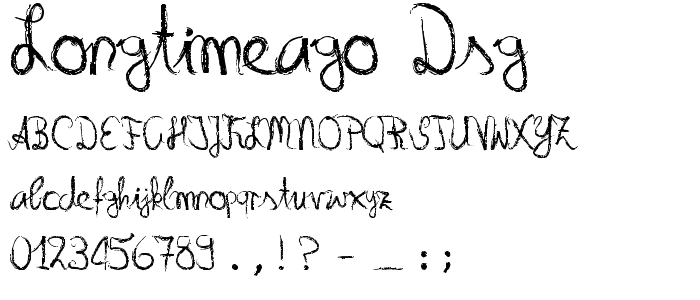 Longtimeago Dsg
ABCDEFGHIJKLMNOPQRSTUVWXYZ
abcdefghijklmnopqrstuvwxyz
0123456789 . , ! ? - _ : ;